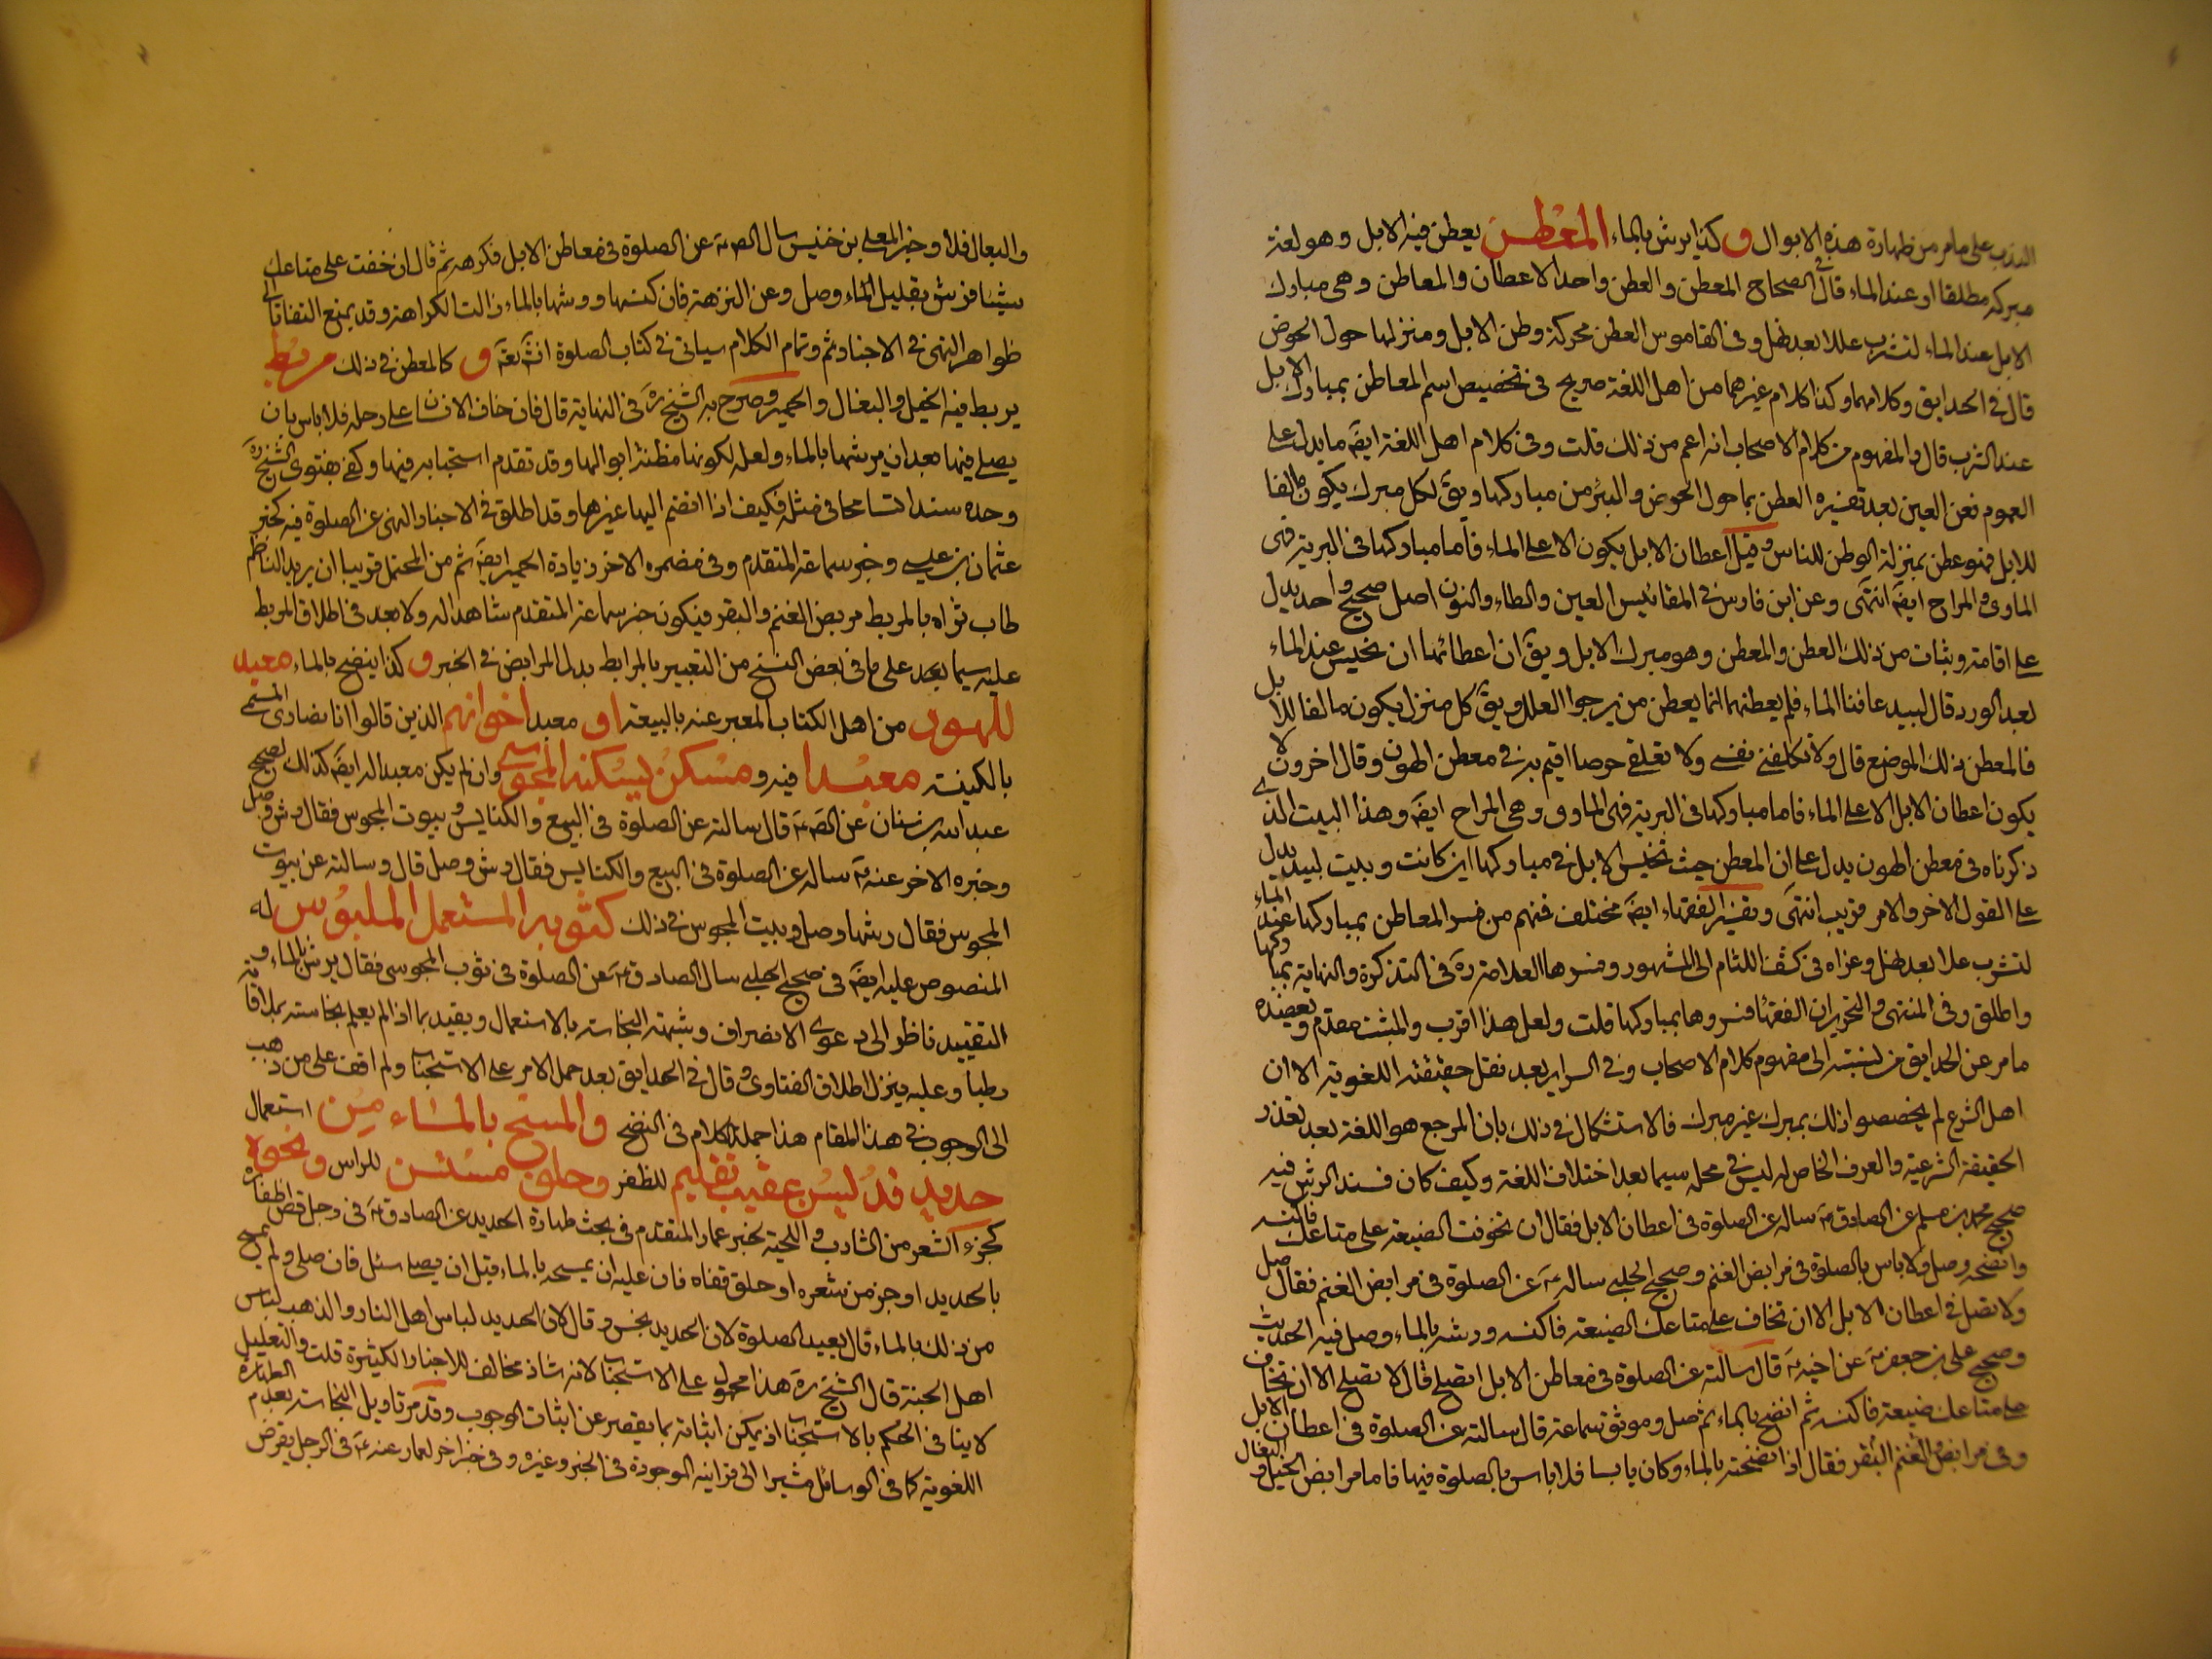 الندب على ما مر من طهارة هذه الابوال و كذا يرش بالماء المعطن يعطن فيه الابل وهو لغة
مبركه مطلقا او عند الماء قال في الصحاح المعطن والعطن واحد الاعطان والمعاطن وهى مبارك
الابل عند الماء لتشرب عللا بعد نهل وفى القاموس العطن محركة وطن الابل ومنزلها حول الحوض
قال فى الحدايق وكلامهما وكذا كلام غيرهما من اهل اللغة صريح فى تخصيص اسم المعاطن بمبارك الابل
عند الشرب قال والمفهوم من كلام الاصحاب انه اعم من ذلك قلت وفى كلام اهل اللغة ايضَ ما يدل على
العموم فعن العين بعد تفسيره العطن بما حول الحوض والبئر من مباركها ويقَ لكل مبرك يكون مالفا
للابل فهو عطن بمنزلة الوطن للناس وقيل اعطان الابل يكون الا على الماء فاما مباركها فى البرية فهى
الماوى والمراح ايضَ انتهى وعن ابن فارس فى المقائيس العين والطاء والنون اصل صحيح واحد يدل
على اقامة وثبات من ذلك العطن والمعطن وهو مبرك الابل ويقَ ان اعطانها ان تحبس عند الماء
بعد الورد قال لبيد عافتا الماء فلم يعطنهما انما يعطن من يرجوا العلل ويقَ كل منزل يكون مالفا للابل
فالمعطن ذلك الموضع قال ولا تكلفنى نفسى ولا تعلقى حرصا اقيم به فى معطن الهون وقال اخرون لا
يكون اعطان الابل الا على الماء فاما مباركها فى البرية فهى الماوى وهى المراح ايضَ وهذا البيت الذى
ذكرناه فى معطن الهون يدل على ان المعطن حيث تحبس الابل فى مباركها اين كانت وبيت لبيد يدل
على القول الاخر والامر قريب انتهى وتفسير الفقهاء ايضَ مختلف فمنهم من فسر المعاطن بمباركها عند الماء
لتشرب عللا بعد نهل وعزاه فى كشف اللثام الى المشهور وفسرها العلامة ره فى التذكرة والنهاية بمباركها
واطلق وفى المنتهى والتحرير ان الفقهاء فسروها بمباركها قلت ولعل هذا اقرب والمثبت مقدم ويعضده
ما مر عن الحدايق من نسبته الى مفهوم كلام الاصحاب وفى السراير بعد نقل حقيقته اللغوية الا ان
اهل الشرع لم يخصصوا ذلك بمبرك غير مبرك فالاستشكال فى ذلك بان المرجع هو اللغة بعد تعذر
الحقيقة الشرعية والعرف الخاص له ليس فى محله سيما بعد اختلاف اللغة وكيف كان فسند الرش فيه
صحيح محمد بن مسلم عن الصادق عَ ساله عن الصلوة فى اعطان الابل فقال ان تخوفت الضيعة على متاعك فاكنسه
وانضحه وصل ولا باس بالصلوة فى مرابض الغنم وصحيح الحلبى ساله عَ عن الصلوة فى مرابض الغنم فقال صل
ولا تصل فى اعطان الابل الا ان تخاف على متاعك الضيعة فاكنسه ورشه بالماء وصل فيه الحديث
وصحيح على بن جعفر عَ عن اخيه عَ قال سالته عن الصلوة فى معاطن الابل اتصلح قال لا تصلح الا ان تخاف
على متاعك ضيعة فاكنسه ثم انضح بالماء ثم صل وموثق سماعة قال سالته عن الصلوة فى اعطان الابل
وفى مرابض الغنم البقر فقال اذا نضحته بالماء وكان يابسا فلا باس بالصلوة فيها فاما مرابض الخيل والبغال
والبغال فلا وخبر المعلى بن خنيس سال الصَ عَ عن الصلوة فى معاطن الابل فكرهه ثم قال ان خفت على متاعك
شيئا فرش بقليل الماء وصل وعن النزهة فان كنسها ورشها بالماء زالت الكراهة وقد يمنع التفاتا الى
ظواهر النهى فى الاخبار ثم وتمام الكلام سياتى فى كتاب الصلوة انشَ تعَ و كالمعطن فى ذلك مربط
يربط فيه الخيل والبغال والحمير وصرح به الشيخ ره فى النهاية قال فان خاف الانسان على رحله فلا باس بان
يصلى فيها بعد ان يرشها بالماء ولعله لكونها مظنة ابوالها وقد تقدم استحبابه فيها وكفى بفتوى الشيخ ره
وحده سندا تسامحا فى مثله فكيف اذا انضم اليها غيرها وقد اطلق فى الاخبار النهى عن الصلوة فيه كخبر
عثمان بن عيسى وخبر سماعة المتقدم وفى مضمره الاخر زيادة الحمير ايضَ ثم من المحتمل قريبا ان يريد الناظم
طاب ثراه بالمربط مربض الغنم والبقر فيكون خبر سماعة المتقدم شاهدا له ولا بعد فى اطلاق المربط
عليه سيما بعد على ما فى بعض النسخ من التعبير بالمرابط بدل المرابض فى الخبر و كذا ينضح بالماء معبد
لليهود من اهل الكتاب المعبر عنه بالبيعة او معبد اخوانهم الذين قالوا انا نصارى المسمى
بالكنيسة معبدا فيه و مسكن يسكنه المجوسى وان لم يكن معبدا له ايضَ كذلك لصحيح
عبد الله بن سنان عن الصَ عَ قال سالته عن الصلوة فى البيع والكنايس وبيوت المجوس فقال رش وصل
وخبره الاخر عنه عَ ساله عن الصلوة فى البيع والكنايس فقال رش وصل قال وسالته عن بيوت
المجوس فقال رشها وصل وبيت المجوس فى ذلك كثوبه المستعمل الملبوس له
المنصوص عليه ايضَ فى صحيح الحلبى سال الصادق عَ عن الصلوة فى ثوب المجوسى فقال يرش بالماء و
التقييد ناظر الى دعوى الانصراف وشبهة النجاسة بالاستعمال ويقيد بما اذا لم يعلم نجاسته بملاقاته
رطبا وعليه ينزل اطلاق الفتاوى وقال فى الحدايق بعد حمل الامر على الاستحباب ولم اقف على من ذهب
الى الوجوب فى هذا المقام هذا جملة الكلام فى النضح والمسح بالماء من استعمال
حديد قد ليس عقيب تقليم للظفر وحلق مسنن للراس ونحوه
كجزء الشعر من الشارب و اللحية لخبر عمار المتقدم فى بحث طهارة الحديد عن الصادق عَ فى رجل قص اظفاره
بالحديد او جز من شعره او حلق قفاه فان عليه ان يمسحه بالماء قبل ان يصلى سئل فان صلى ولم يمسح
من ذلك بالماء قال يعيد الصلوة لان الحديد نجس وقال لان الحديد لباس اهل النار والذهب لباس
اهل الجنة قال الشيخ ره هذا محمول على الاستحباب لانه شاذ مخالف للاخبار الكثيرة قلت والتعليل
لا ينافى الحكم بالاستحباب اذ يمكن اثباته بما يقصر عن اثبات الوجوب وقد مر تاويل النجاسة بعدم الطهارة
اللغوية كما فى الوسائل مشيرا الى قرائنه الموجودة فى الخبر وغيره وفى خبر اخر لعمار عنه عَ فى الرجل يقرض